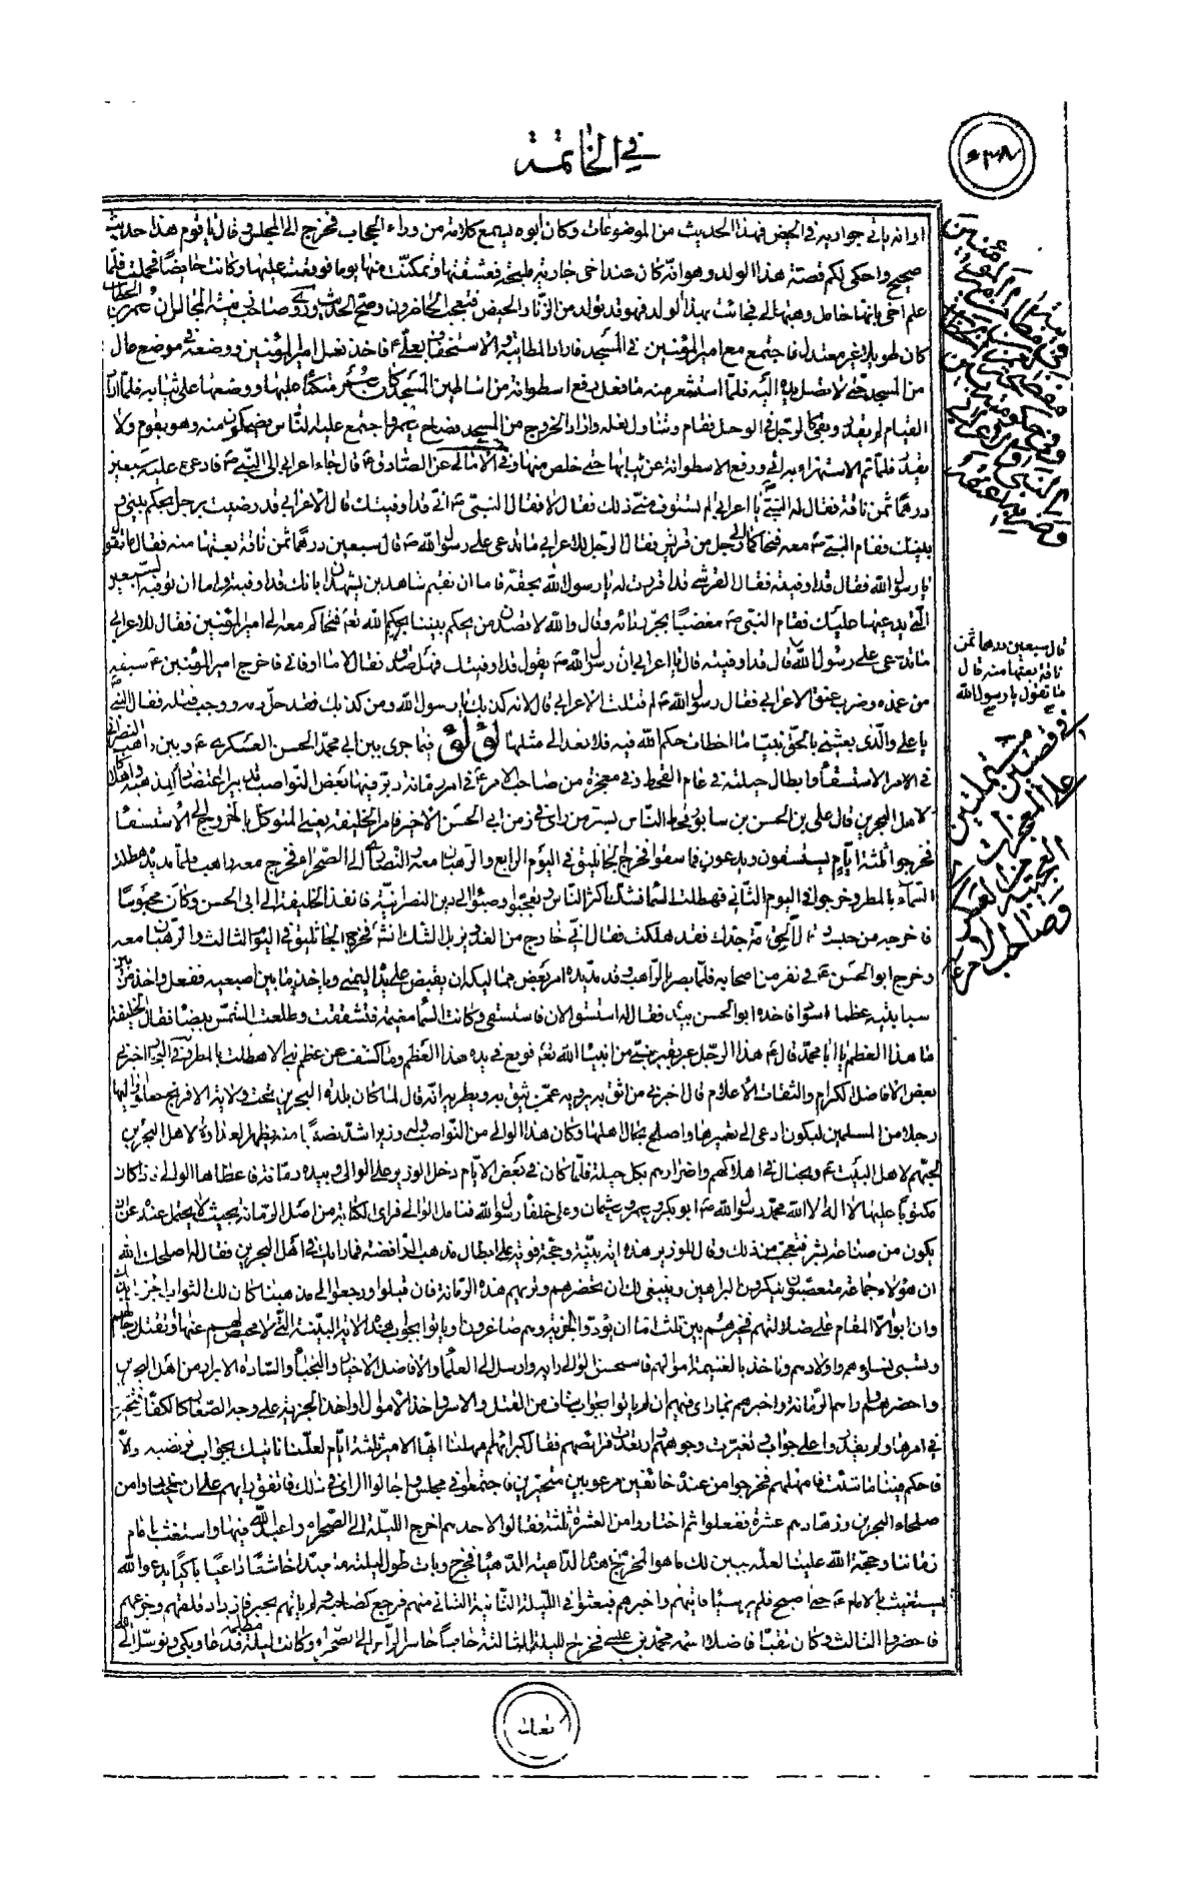 في الخاتمة
٣٨٠
او انه ياتي جواريه في الحيض فهذا الحديث من الموضوعات وكان ابوه يسمع كلامه من وراء الحجاب فخرج الى المجلس وقال يا قوم هذا حديث
صحيح واحكي لكم قصة هذا الولد وهو انه كان عند اخي جارية مليحة فعشقتها وتمكنت منها يوما فوقعت عليها وكانت حايضا فحملت فلما
علم اخي بانها حامل وهبها لي فجائت بهذا الولد فهو قد تولد من الزنا والحيض فتعجب الحاضرون وصح الحديث وروى صاحب المجالس ان عمر بن الخطاب
كان طويلا غير معتدل فاجتمع مع امير المؤمنين في المسجد فاراد المطايبة والاستخفاف بعلي ع فاخذ نعل امير المؤمنين ووضعه في موضع عال
من المسجد حتى لا تصل يده اليه فلما استشعر منه ما فعل رفع اسطوانة من اساطين المسجد كان عمر متكئا عليها ووضعها على ثيابه فلما اراد
القيام لم يقدر وبقي كالوحل في الوحل فقام وتناول نعله واراد الخروج من المسجد فصاح عمر واجتمع عليه الناس يضحكون منه وهو يقوم ولا
يقدر فلما تم الاستهزاء به اتى ورفع الاسطوانة عن ثيابها حتى خلص منها وفي الامالي عن الصادق ع قال جاء اعرابي الى النبي ص فادعى عليه سبعين
درهما ثمن ناقة فقال له النبي يا اعرابي الم تستوف مني ذلك فقال لا فقال النبي ص اني قد اوفيتك قال الاعرابي قد رضيت برجل يحكم بيني و
بينك فقام النبي ص معه فتحاكما الى رجل من قريش فقال الرجل للاعرابي ما تدعي على رسول الله ص قال سبعين درهما ثمن ناقة بعتها منه فقال ما تقول
يا رسول الله فقال قد اوفيته فقال القرشي قد اقررت له يا رسول الله بحقه فاما ان تقيم شاهدين يشهدان بانك قد اوفيته واما ان توفيه السبعين
التي يدعيها عليك فقام النبي ص مغضبا يجر ردائه وقال والله لاقصدن من يحكم بيننا بحكم الله تع فتحاكم معه الى امير المؤمنين فقال للاعرابي
ما تدعي على رسول الله قال قد اوفيته قال يا اعرابي ان رسول الله ص يقول قد اوفيتك فهل صدق فقال لا ما اوفاني فاخرج امير المؤمنين ع سيفه
من غمده وضرب عنق الاعرابي فقال رسول الله ص لم قتلت الاعرابي قال لانه كذبك يا رسول الله ومن كذبك فقد حل دمه ووجب قتله فقال النبي
يا علي والذي بعثني بالحق نبيا ما اخطات حكم الله فيه فلا تعد الى مثلها لؤلؤ فيما جرى بين ابي محمد الحسن العسكري ع وبين راهب النصراني
في الامر الاستسقاء وابطال حيلته في عام القحط وفي معجزة من صاحب الامر ع في امر رمانة دبر فيها بعض النواصب
لاهل البحرين قال علي بن الحسن بن سابور قحط الناس بسر من راى في زمن ابي الحسن الاخير فامر الخليفة يعني المتوكل بالخروج الى الاستسقاء
فخرجوا ثلثة ايام يستسقون ويدعون فما سقوا فخرج الجاثليق في اليوم الرابع والرهبان معه والنصارى الى الصحراء فخرج معه راهب فلما مد يده هطلت
السماء بالمطر وخرجوا في اليوم الثاني فهطلت السماء فشك اكثر الناس وتعجبوا وصبوا الى دين النصرانية فانفذ الخليفة الى ابي الحسن وكان محبوسا
فاخرجه من حبسه وقال الحق امة جدك فقد هلكت فقال اني خارج من الغد ومزيل الشك انشاء الله فخرج الجاثليق في اليوم الثالث والرهبان معه
وخرج ابو الحسن ع في نفر من اصحابه فلما بصر بالراهب وقد مد يده امر بعض مماليكه ان يقبض على يده اليمنى وياخذ ما بين اصبعيه ففعل واخذ من بين
سبابتيه عظما اسود فاخذه ابو الحسن بيده فقال له استسق الان فاستسقى وكانت السماء مغيمة فتقشعت وطلعت الشمس بيضاء فقال الخليفة
ما هذا العظم يا ابا محمد قال ع هذا الرجل عبر بقبر نبي من انبياء الله تع فوقع في يده هذا العظم وما كشف عن عظم نبي الا هطلت بالمطر في البحار اخبرني
بعض الافاضل الكرام والثقات الاعلام قال اخبرني من اثق به يرويه عمن يثق به ويطريه انه قال لما كان بلدة البحرين تحت ولاية الافرنج جعلوا واليها
رجلا من المسلمين ليكون ادعى الى تعميرها واصلح بحال اهلها وكان هذا الوالي من النواصب وله وزير اشد نصبا منه يظهر العداوة لاهل البحرين
لحبهم لاهل البيت ع ويحتال في اهلاكهم واضرارهم بكل حيلة فلما كان في بعض الايام دخل الوزير على الوالي وبيده رمانة فاعطاها الوالي فاذا كان
مكتوبا عليها لا اله الا الله محمد رسول الله ص ابو بكر وعمر وعثمان وعلي خلفاء رسول الله فتامل الوالي فراى الكتابة من اصل الرمانة بحيث لا يحتمل عنده ان
يكون من صناعة بشر فتعجب من ذلك وقال للوزير هذه اية بينة وحجة قوية على ابطال مذهب الرافضة فما رايك في اهل البحرين فقال له اصلحك الله
ان هؤلاء جماعة متعصبون ينكرون البراهين وينبغي لك ان تحضرهم وتريهم هذه الرمانة فان قبلوا ورجعوا الى مذهبنا كان لك الثواب الجزيل بذلك
وان ابوا الا المقام على ضلالتهم فخيرهم بين ثلث اما ان يؤدوا الجزية وهم صاغرون او ياتوا بجواب هذه الاية البينة التي لا محيص لهم عنها او تقتل رجالهم
وتسبي نساءهم واولادهم وتاخذ بالغنيمة اموالهم فاستحسن الوالي رايه وارسل الى العلماء والافاضل الاخيار والنجباء والسادة الابرار من اهل البحرين
واحضرهم واراهم الرمانة واخبرهم بما راى فيهم ان لم ياتوا بجواب شاف من القتل والاسر واخذ الاموال او اخذ الجزية على وجه الصغار كالكفار فتحيروا
في امرها ولم يقدروا على جواب وتغيرت وجوههم وارتعدت فرائصهم فقال كبراؤهم امهلنا ايها الامير ثلثة ايام لعلنا ناتيك بجواب ترتضيه والا
فاحكم فينا ما شئت فامهلهم فخرجوا من عنده خائفين مرعوبين متحيرين فاجتمعوا في مجلس واجالوا الراي في ذلك فاتفق رايهم على ان يختاروا من
صلحاء البحرين وزهادهم عشرة ففعلوا ثم اختاروا من العشرة ثلثة فقالوا لاحدهم اخرج الليلة الى الصحراء واعبد الله فيها واستغث بامام
زماننا وحجة الله علينا لعله يبين لك ما هو المخرج من هذه الداهية الدهماء فخرج وبات طول ليلته متعبدا خاشعا داعيا باكيا يدعو الله
ويستغيث بالامام ع حتى اصبح فلم ير شيئا فاتيهم واخبرهم فبعثوا في الليلة الثانية الثاني منهم فرجع كصاحبه ولم ياتهم بخبر فازداد قلقهم وجزعهم
فاحضروا الثالث وكان تقيا فاضلا اسمه محمد بن عيسى فخرج الليلة الثالثة حافيا حاسر الراس الى الصحراء وكانت ليلة مظلمة فدعا وبكى وتوسل الى الله
قال سبعين درهما ثمن
ناقة بعتها منه قال
ما تقول يا رسول الله
في قصتين مشتملتين
على المعجزات
العجيبة من العسكري
وصاحب الامر ع
تعالى